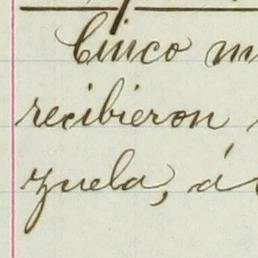 Cinco m
recibieron
zuela, á